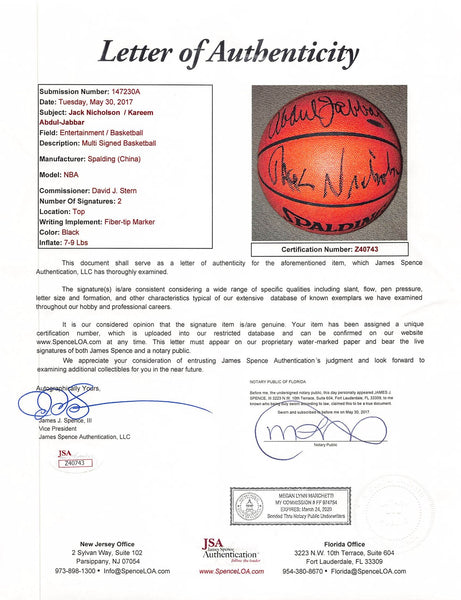 Letter of Authenticity
Submission Number: 147230A
Date: Tuesday, May 30, 2017
Subject: Jack Nicholson / Kareem
Abdul-Jabbar
Field: Entertainment / Basketball
Description: Multi Signed Basketball
Manufacturer: Spalding (China)
Model: NBA
Commissioner: David J. Stern
Number Of Signatures: 2
Location: Top
Writing Implement: Fiber-tip Marker
Color: Black
Inflate: 7-9 Lbs
Abdul-Jabbar
Jack Nicholson
SPALDING
Certification Number: Z40743
This document shall serve as a letter of authenticity for the aforementioned item, which James Spence
Authentication, LLC has thoroughly examined.
The signature(s) is/are consistent considering a wide range of specific qualities including slant, flow, pen pressure,
letter size and formation, and other characteristics typical of our extensive database of known exemplars we have examined
throughout our hobby and professional careers.
It is our considered opinion that the signature item is/are genuine. Your item has been assigned a unique
certification number, which is uploaded into our restricted database and can be confirmed on our website
www.SpenceLOA.com at any time. This letter must appear on our proprietary water-marked paper and bear the live
signatures of both James Spence and a notary public.
We appreciate your consideration of entrusting James Spence Authentication's judgment and look forward to
examining additional collectibles for you in the near future.
Autographically Yours,
James J. Spence, III
Vice President
James Spence Authentication, LLC
JSA
Z40743
NOTARY PUBLIC OF FLORIDA
Before me, the undersigned notary public, this day personally appeared JAMES J.
SPENCE, III 3223 N.W. 10th Terrace, Suite 604, Fort Lauderdale, FL 33309, to me
known who being duly sworn according to law, claimed this to be a true document.
Sworn and subscribed to before me on May 30, 2017
Notary Public
MEGAN LYNN MARCHETTI
MY COMMISSION # FF 974754
EXPIRES: March 24, 2020
Bonded Thru Notary Public Underwriters
New Jersey Office
2 Sylvan Way, Suite 102
Parsippany, NJ 07054
973-898-1300 • Info@SpenceLOA.com
JSA
James Spence
Authentication
follow the authentication leader
www.SpenceLOA.com
Florida Office
3223 N.W. 10th Terrace, Suite 604
Fort Lauderdale, FL 33309
954-380-8670 • Florida@SpenceLOA.com